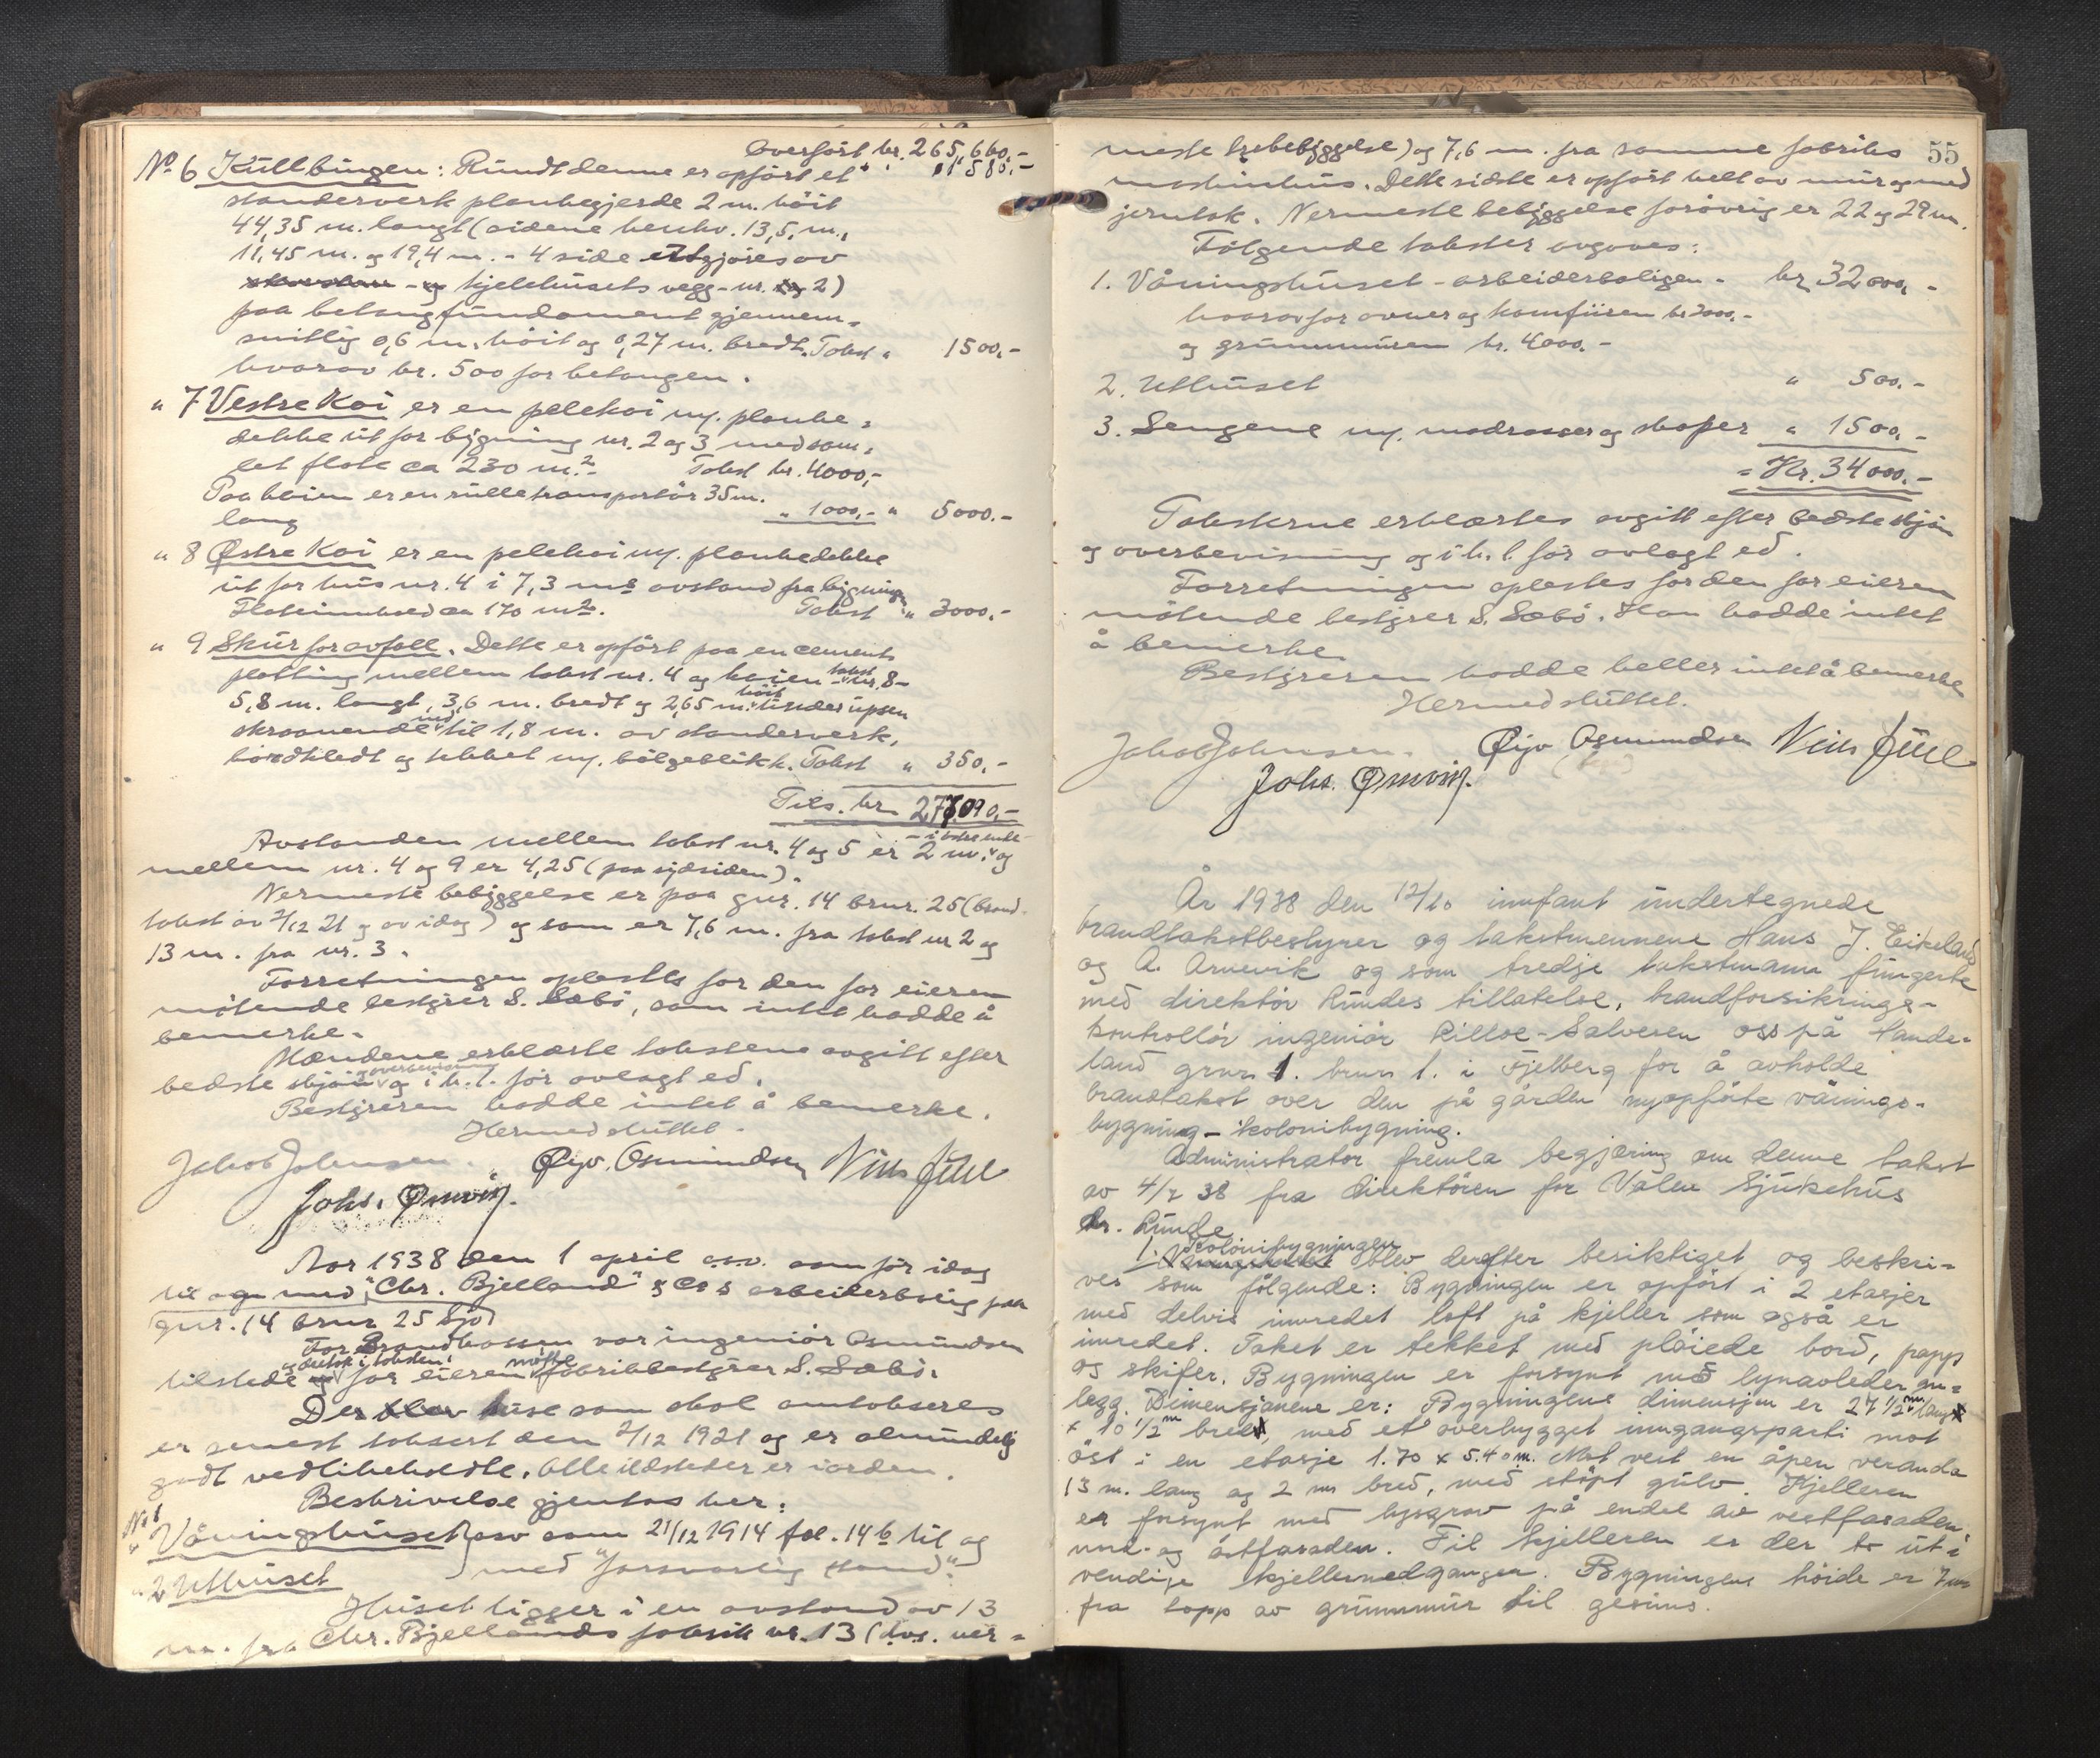 Overført kr. 265,660.-
No 6 Kullbingen: Rundt denne er opført et " 1580.-
standerverk plankegjerde 2 m. höit
44,35 m. langt (sidene henhv. 13,5. m.,
11,45 m. og 19,4 m. - 4 side utgjöres av
kjelehusets vegg - nr. 2)
paa betongfundament gjennem-
snittlig 0,6 m. höit og 0,27 m. bredt. Takst " 1500.-
hvorav kr. 500 for betongen.
" 7 Vestre Kai er en pelekai m/. planke-
dekke ut for bygning nr. 2 og 3 med sam-
let flate ca 230 m.2- Takst kr. 4000,-
Paa kaien er en rulletransportör 35 m.
lang " 1000.- " 5000.-
" 8 Østre Kai er en pelekai m/. plankedekke
ut for hus nr. 4 i 7,3 ms avstand fra bygningen
Flateinnhold ca 170 m2. Takst " 3000.-
" 9 Skur for avfall. Dette er opfört paa en cement
platting mellem takst nr. 4 og kaien - takst nr. 8 -
5,8 m. langt, 3,6 m. bredt og 2,65 m. höit under upsen
skraanende ned til 1,8 m. av standerverk,
bordkledt og tekket m/. bölgeblikk. Takst " 350.-
Tils. kr 277.090.-
Avstanden mellem takst nr. 4 og 5 er 2 m. - i østre ende - og
mellem nr. 4 og 9 er 4,25 (paa sjösiden).
Nermeste bebyggelse er paa gnr. 14 brnr. 25 (brand-
takst av 2/12 21 og av idag) og som er 7,6 m. fra takst nr 2 og
13 m. fra nr. 3.
Forretningen oplestes for den for eieren
mötende bestyrer S. Sæbö, som intet hadde å
bemerke.
Mændene erklærte takstene avgitt efter
bedste skjön og overbevisning og i h. t. för avlagt ed.
Bestyreren hadde intet å bemerke.
Hermed sluttet.
Jakob Johnsen. Øyv. Osmundsen Nils Juul
Johs. Ømvig.
Aar 1938 den 1 april o.s.v. som för idag
til ogn med "Chr. Bjelland" & Co s arbeiderbolig paa
gnr. 14 brnr 25
For Brandkassen var ingeniör Osmundsen
tilstede og deltok i taksten. for eieren mötte fabrikkbestyrer S. Sæbö.
De huse som skal omtakseres
er senest taksert den 2/12 1921 og er almindelig
godt vedlikeholdte. Alle ildsteder er i orden.
Beskrivelse gjentas her:
No 1 Våningshuset osv som 21/12 1914 fol. 14 b til og
" 2 Uthuset med "forsvarlig stand".
Huset ligger i en avstand av 13
m. fra Chr. Bjellands fabrik nr. 13 (dvs. ner-
55
meste trebebyggelse) og 7,6 m. fra samme fabriks
maskinhus. Dette sidste er opfört helt av mur og med
jerntak. Nermeste bebyggelse forövrig er 22 og 29 m.
Fölgende takster avgaves:
1. Våningshuset - arbeiderboligen - kr 32000,-
hvorav for ovner og komfuren kr 2000.-
og grunnmuren kr. 4000.-
2. Uthuset " 500.-
3. Sengene m/. madrasser og skaper " 1500.-
= Kr. 34000.-
Taksterne erklærtes avgitt efter bedste skjön
og overbevisning og i h. t. för avlagt ed.
Forretningen oplestes for den for eieren
mötende bestyrer S. Sæbö. Han hadde intet
å bemerke
Bestyreren hadde heller intet å bemerke
Hermed sluttet.
Jakob Johnsen. Øyv Osmundsen Nils Juul
Johs. Ømvig.
År 1938 den 12/10 innfant undertegnede
brandtakstbestyrer og takstmennene Hans J. Eikeland
og A. Arnevik og som tredje takstmann fungerte
med direktör Lundes tillatelse, brandforsikrings-
kontrollör ingeniör Rilloe-Salvesen oss på Hande-
land grnr 1. brnr 1. i Fjelberg for å avholde
brandtakst over den på gården nyopförte vånings-
bygning - kolonibygning.
Administrator fremla begjæring om denne takst
av 4/7 38 fra Direktören for Valen Sjukehus
dr. Lunde
1. Kolonibygningen blev derefter besiktiget og beskri-
ves som fölgende: Bygningen er opfört i 2 etasjer
med delvis innredet loft på kjeller som også er
innredet. Taket er tekket med plöiede bord, papp
og skifer. Bygningen er forsynt med lynavleder an-
legg. Dimensjonene er: Bygningens dimensjon er 27 1/2 m lang
x 10 1/2 m bred, med et overbygget inngangsparti mot
öst i en etasje 1.70 x 5.40 m. Mot vest en åpen veranda
13 m. lang og 2 m bred, med støpt gulv. Kjelleren
er forsynt med lysgrav på endel av vestfasaden,
nord- og östfasaden. Til kjelleren er der to ut-
vendige kjellernedganger. Bygningens höide er 7 m
fra topp av grunnmur til gesims.